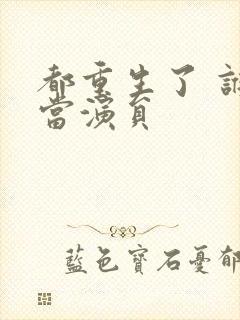 都重生了 誰
當演員
藍色寶石憂郁